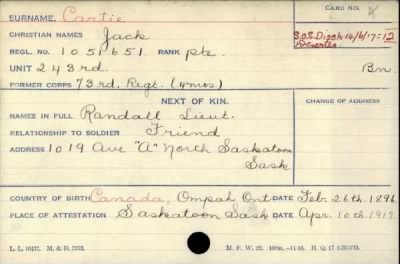 CARD NO.
SURNAME. Cartie
CHRISTIAN NAMES Jack
S.O.S. Disch 14/6/17=12
Deserter
REGL. NO. 1051651 RANK pte.
UNIT 243rd. Bn.
FORMER CORPS 73rd. Regt. (4 mos)
NEXT OF KIN. CHANGE OF ADDRESS
NAMES IN FULL Randall Lieut.
RELATIONSHIP TO SOLDIER Friend
ADDRESS 1019 Ave "A" North Saskatoon
Sask
COUNTRY OF BIRTH Canada, Ompah Ont. DATE Feb. 26th. 1896
PLACE OF ATTESTATION Saskatoon Sask DATE Apr. 10th. 1917